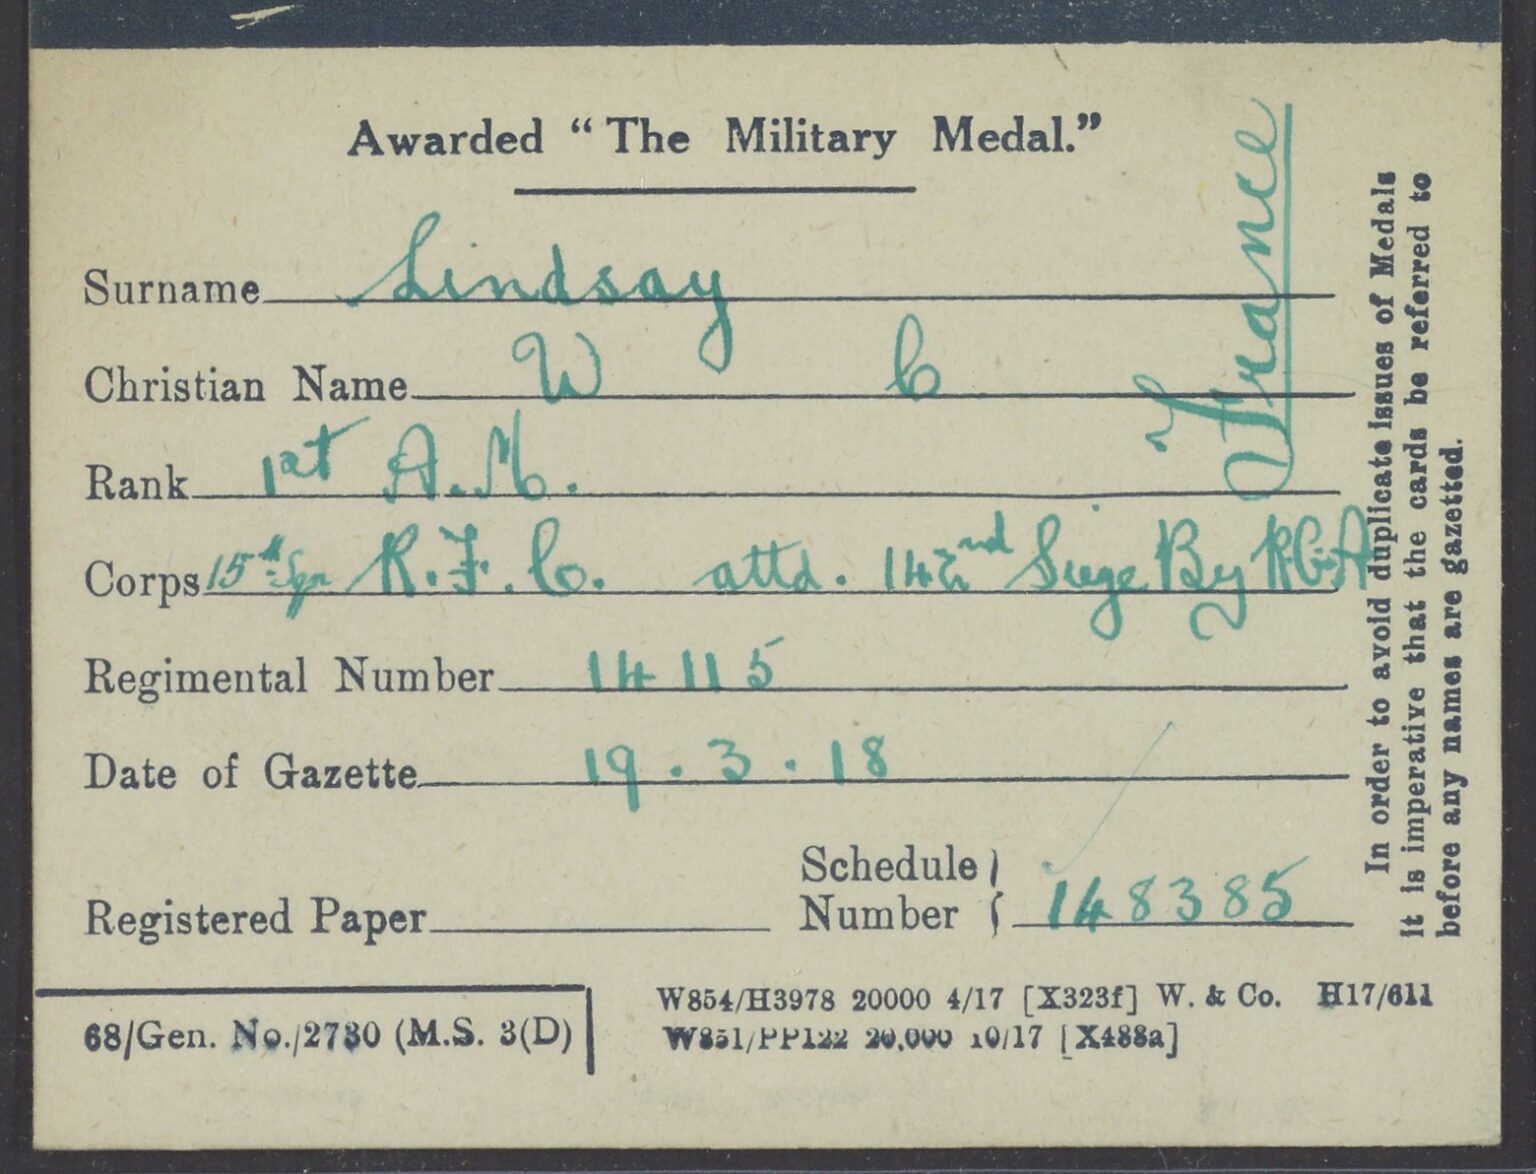 Awarded “The Military Medal.”
Surname Lindsay
Christian Name W C
Rank 1st A.M.
Corps 15th Sqn R.F.C. attd. 142nd Siege By R.G.A
Regimental Number 14115
Date of Gazette 19.3.18
Registered Paper
Schedule Number 148385
68/Gen. No./2730 (M.S. 3(D)
W854/H3978 20000 4/17 [X323f] W. & Co. H17/611
W851/PP122 20,000 10/17 [X488a]
France
In order to avoid duplicate issues of Medals
it is imperative that the cards be referred to
before any names are gazetted.